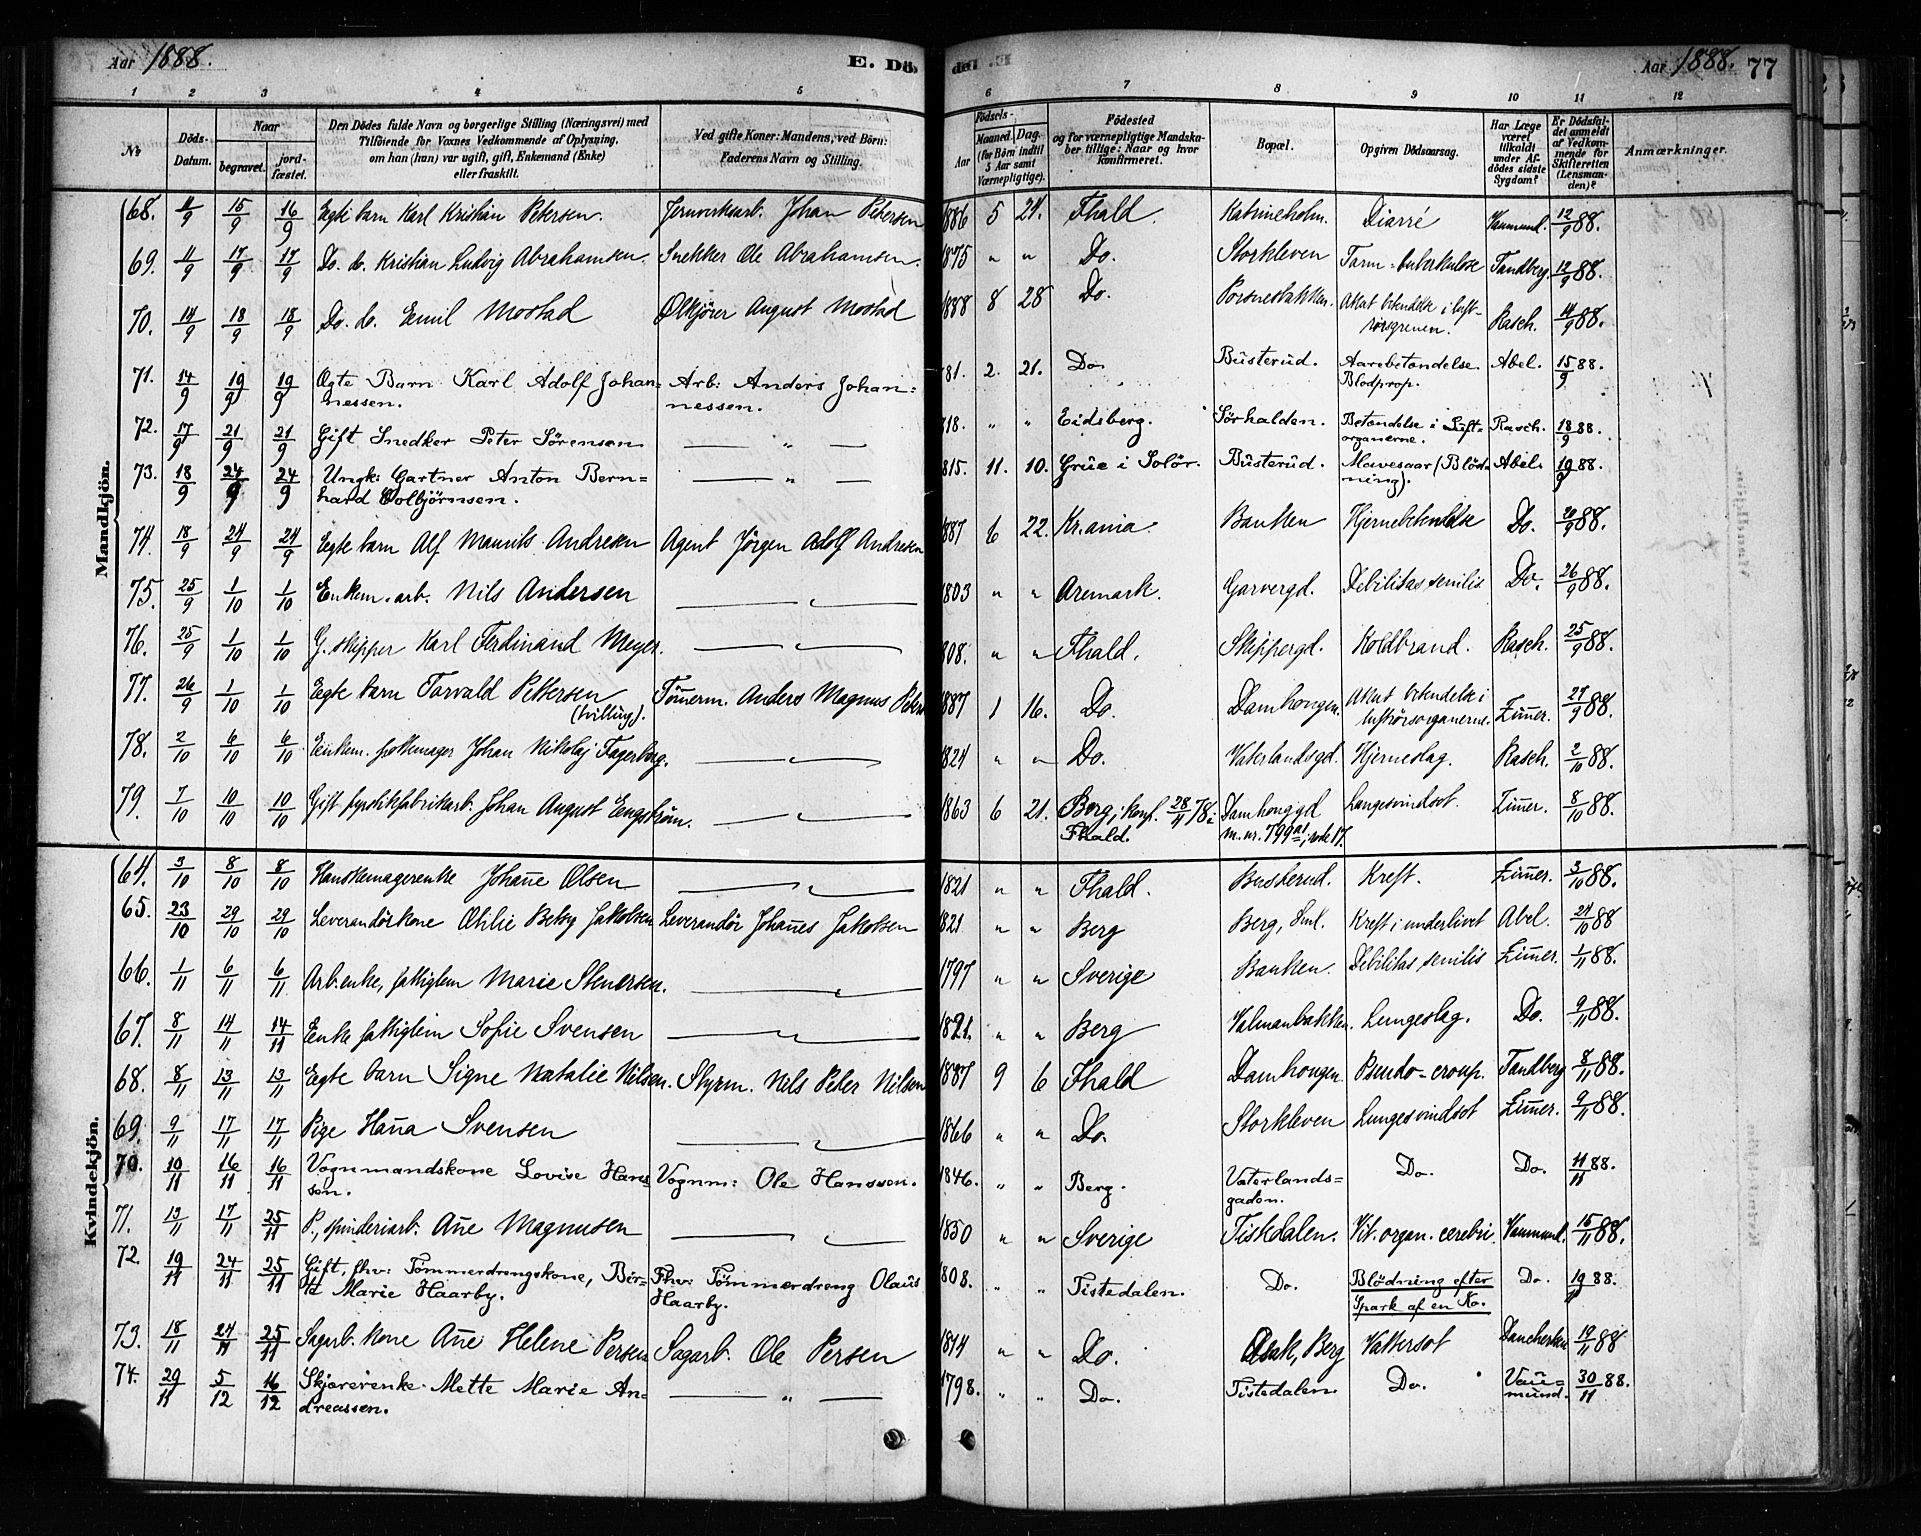 Aar 1888. E. Dö.
E. Död Aar 1888. 77
1 2 3 4 5 6 7 8 9 10 11 12
№
Döds-Datum.
Naar
begravet.
jord-fæstet.
Den Dödes fulde Navn og borgerlige Stilling (Næringsvei) med
Tilföiende for Voxnes Vedkommende af Oplysning,
om han (hun) var ugift, gift, Enkemand (Enke)
eller fraskilt.
Ved gifte Koner: Mandens, ved Börn:
Faderens Navn og Stilling.
Födsels-
Aar
Maaned. Dag.
(for Börn indtil
5 Aar samt
Værnepligtige).
Födested
og for værnepligtige Mandska-
ber tillige: Naar og hvor
konfirmeret.
Bopæl.
Opgiven Dödsaarsag.
Har Læge
været
tilkaldt
under Af-
dödes sidste
Sygdom?
Er Dödsfal-
det anmeldt
af Vedkom-
mende for
Skifteretten
(Lensman-
den)?
Anmærkninger.
Mandkjön.
68. 11/9 15/9 16/9 Egte barn Karl Kristian Petersen. Jernverksarb. Johan Petersen 1886 5 24. Fhald. Katrineholm. Diarré Vaumund. 12/9 88.
69. 11/9 17/9 17/9 Do. do. Kristian Ludvig Abrahamsen. Snekker Ole Abrahamsen. 1875 " " Do. Storkleven Tarm-tuberkulose Tandberg. 12/9 88.
70. 14/9 18/9 18/9 Do. do. Emil Mostad Ølkjører August Mostad 1888 8 28 Do. Porsnesbakken. Akut betendelse i luft-
rørsgrenen. Rasch. 14/9 88.
71. 14/9 19/9 19/9 Ægte Barn Karl Adolf Johan= Arb: Anders Johan= 81. 2. 21. Do. Busterud. Aarebetændelse. Abel. 15/9 88.
nessen. nessen. Blodprop.
72. 17/9 21/9 21/9 Gift Snedker Peter Sørensen — " — 818. " " Eidsberg. Sørhalden. Betændelse i Luft- Rasch. 18/9 88.
organerne.
73. 18/9 24/9 24/9 Ungk: Gartner Anton Bern= — " — 815. 11. 10. Grue i Solør. Busterud. Mavesaar (Blød- Abel. 19/9 88.
hard Colbjørnsen. ning).
74. 18/9 24/9 24/9 Egte barn Alf Maurits Andresen Agent Jörgen Adolf Andresen 1887 6 22. Kr.ania. Banken Hjernebetendelse Do. 20/9 88.
75. 25/9 1/10 1/10 Enkem. arb. Nils Andersen — " — 1803 " " Aremark. Garvergd. Debilitas senilis Do. 26/9 88.
76. 25/9 1/10 1/10 G. skipper Karl Ferdinand Meyer. — " — 808. " " Fhald. Skippergd. Koldbrand. Rasch. 25/9 88.
77. 26/9 1/10 1/10 Egte barn Torvald Pettersen Tömerm. Anders Magnus Peters 1887 1 16. Do. Damhaugen. Akut betendelse i Zimer. 27/9 88.
(tvilling). luftrörsorganerne.
78. 2/10 6/10 6/10 Enkem. Johan Nikolaj Fagerborg. — " — 1824 " " Do. Vaterlandsgd. Hjerneslag. Rasch. 2/10 88.
79. 7/10 10/10 10/10 Gift Johan August Engström. — " — 1863 6 21. Berg; konf. 28/4 78 i Damhauggd Lungesvindsot. Zimer. 8/10 88.
Fhald. m.nr. 799, rode 17.
Kvindekjön.
64. 3/10 8/10 8/10 Hanskemagerenke Johane Olsen — " — 1821 " " Fhald. Busterud. Kreft. Zimer. 3/10 88.
65. 23/10 29/10 29/10 Leverandörkone Othilie Betsy Jakobsen Leverandör Johanes Jakobsen 1821 " " Berg Berg, Sml. Kreft i underlivet Abel. 24/10 88
66. 1/11 6/11 6/11 Arb.enke, fattiglem Marie Stenersen. — " — 1797 " " Sverige Banken. Debilitas senilis Zimer. 1/11 88.
67. 8/11 14/11 14/11 Enke fattiglem Sofie Svensen — " — 1821. " " Berg Valmanbakken. Lungeslag. Do. 9/11 88.
68. 8/11 13/11 13/11 Egte barn Signe Natalie Nilsen. Styrm. Nils Peter Nilsen 1887 9 6 Fhald Damhaugen Pseudo-croup. Tandberg 8/11 88.
69. 9/11 17/11 17/11 Pige Hana Svensen — " — 1866 " " Do. Storkleven Lungesvindsot Zimer. 9/11 88.
70. 10/11 16/11 16/11 Vognmandskone Lovise Hans= Vognm: Ole Hanssen. 1846. " " Berg. Vaterlands= Do. Do. 11/11 88.
sen. gaden.
71. 13/11 17/11 25/11 P., spinderiarb. Ane Magnusen — " — 1850 " " Sverige Tistdalen. Vit. organ. cerebri. Vaumund. 15/11 88.
72. 19/11 24/11 25/11 Gift, fhv: Tömmerdrengskone, Ber= Fhv: Tömmerdreng Olaus 1808. " " Tistedalen. Do. Blödning efter Do. 19/11 88.
tha Marie Haarby. Haarby. Spark af en Ko.
73. 18/11 24/11 25/11 Sagarb. kone Ane Helene Persen Sagarb. Ole Persen 1814 " " Do. Asak, Berg Vattersot Danchertsen 19/11 88
74. 29/11 5/12 16/12 Skjærerenke Mette Marie An= — " — 1798. " " Do. Tistedalen. Do. Vau= 30/11 88.
dreassen. mund.